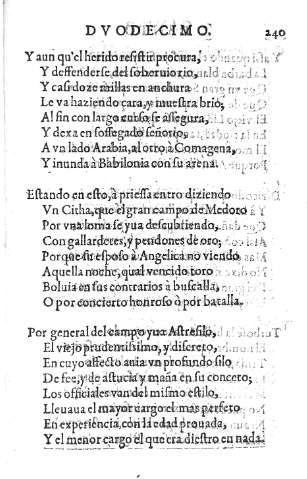 DVODECIMO. 240
Y aun qu'el herido resistir procura,
Y deffenderse del soberuio rio,
Y casi doze millas en anchura
Le va haziendo cara, y muestra brio;
Al fin con largo curso se assegura,
Y dexa en sossegado señorio,
A vn lado Arabia, al otro à Comagena,
Y inunda à Babilonia con su arena.
Estando en esto, à priessa entro diziendo
Vn Citha, que el gran campo de Medoro
Por vna loma se yua descubriendo,
Con gallardetes, y pendones de oro;
Porque su esposo à Angelica no viendo
Aquella noche, qual vencido toro
Boluia en sus contrarios à buscalla,
O por concierto honroso ò por batalla.
Por general del campo yua Astresilo,
El viejo prudentissimo, y discreto,
En cuyo affecto auia vn profundo silo
De fee, y de astucia y maña en su conceto;
Los officiales van del mismo estilo,
Lleuaua el mayor cargo el mas perfeto
En experiencia, con la edad prouada,
Y el menor cargo el que era diestro en nada.